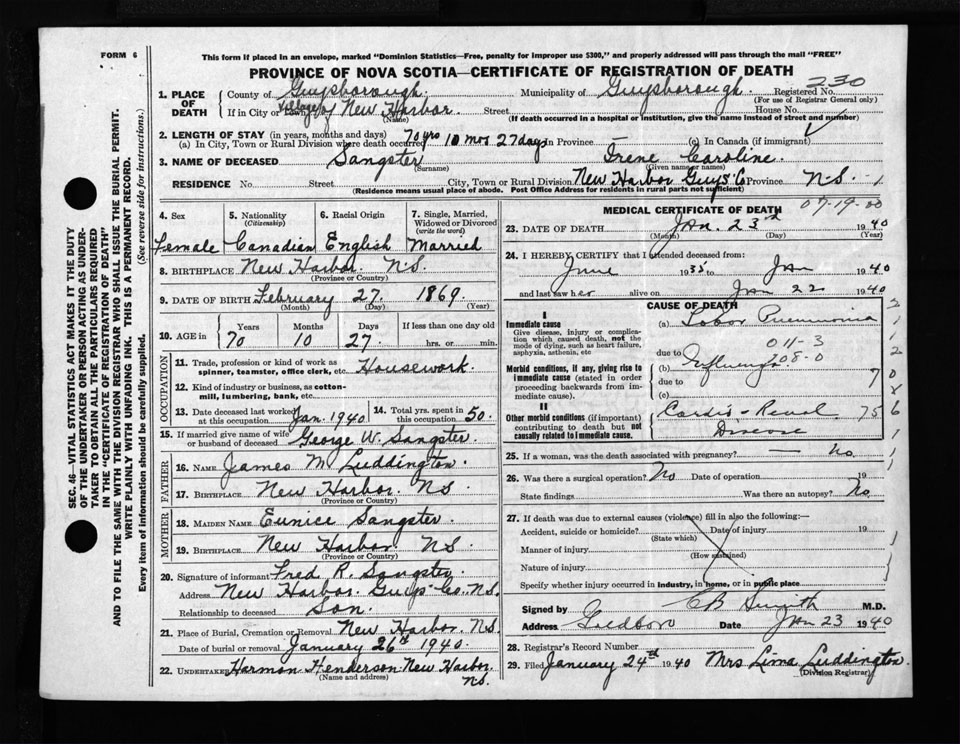 FORM 6
This form if placed in an envelope, marked "Dominion Statistics—Free, penalty for improper use $300," and properly addressed will pass through the mail "FREE"
PROVINCE OF NOVA SCOTIA—CERTIFICATE OF REGISTRATION OF DEATH
230
1. PLACE OF DEATH County of Guysborough. Municipality of Guysborough. Registered No.
(For use of Registrar General only)
If in City or Town Village of New Harbor. Street House No.
(Name) (If death occurred in a hospital or institution, give the name instead of street and number)
2. LENGTH OF STAY (in years, months and days)
(a) In City, Town or Rural Division where death occurred 70 yrs 10 mos 27 days In Province (c) In Canada (if immigrant) ✓
3. NAME OF DECEASED Sangster Irene Caroline.
(Surname) (Given name or names)
RESIDENCE No. Street City, Town or Rural Division New Harbor Guys' Co Province N.S. 1
(Residence means usual place of abode. Post Office Address for residents in rural parts not sufficient)
4. Sex Female
5. Nationality (Citizenship) Canadian
6. Racial Origin English
7. Single, Married, Widowed or Divorced (write the word) Married
8. BIRTHPLACE New Harbor. N.S.
(Province or Country)
9. DATE OF BIRTH February 27. 1869.
(Month) (Day) (Year)
10. AGE in Years 70 Months 10 Days 27. If less than one day hrs. or min.
OCCUPATION
11. Trade, profession or kind of work as spinner, teamster, office clerk, etc. Housework.
12. Kind of industry or business, as cotton-mill, lumbering, bank, etc.
13. Date deceased last worked at this occupation Jan. 1940
14. Total yrs. spent in this occupation 50.
15. If married give name of wife or husband of deceased George W. Sangster.
FATHER
16. NAME James M Luddington.
17. BIRTHPLACE New Harbor. N.S
(Province or Country)
MOTHER
18. MAIDEN NAME Eunice Sangster.
19. BIRTHPLACE New Harbor N.S
(Province or Country)
20. Signature of informant Fred R. Sangster.
Address New Harbor. Guys Co. N.S.
Relationship to deceased Son.
21. Place of Burial, Cremation or Removal New Harbor. N.S.
Date of burial or removal January 26th 1940.
22. UNDERTAKER Harmon Henderson. New Harbor. N.S.
(Name and address)
MEDICAL CERTIFICATE OF DEATH 07-19-00
23. DATE OF DEATH Jan. 23rd 1940
(Month) (Day) (Year)
24. I HEREBY CERTIFY that I attended deceased from:
June 1935 to Jan 1940
and last saw her alive on Jan 22 1940
CAUSE OF DEATH
I
Immediate cause
Give disease, injury or complication which caused death, not the mode of dying, such as heart failure, asphyxia, asthenia, etc
(a) Lobar Pneumonia
011-3
due to
208-0
Morbid conditions, if any, giving rise to immediate cause (stated in order proceeding backwards from immediate cause)
(b) Influenza.
due to 7
(c)
II
Other morbid conditions (if important) contributing to death but not causally related to immediate cause.
Cardio-Renal 75
Disease
25. If a woman, was the death associated with pregnancy? — no.
26. Was there a surgical operation? No Date of operation 19
State findings Was there an autopsy? No
27. If death was due to external causes (violence) fill in also the following:—
Accident, suicide or homicide? Date of injury 19
(State which)
Manner of injury
(How sustained)
Nature of injury
Specify whether injury occurred in industry, in home, or in public place
Signed by CB Smith M.D.
Address Date Jan 23 1940
28. Registrar's Record Number
29. Filed January 24th 1940 Mrs Lima Luddington.
(Division Registrar)
SEC. 46—VITAL STATISTICS ACT MAKES IT THE DUTY OF THE UNDERTAKER OR PERSON ACTING AS UNDERTAKER TO OBTAIN ALL THE PARTICULARS REQUIRED IN THE "CERTIFICATE OF REGISTRATION OF DEATH" AND TO FILE THE SAME WITH THE DIVISION REGISTRAR WHO SHALL ISSUE THE BURIAL PERMIT.
WRITE PLAINLY WITH UNFADING INK. THIS IS A PERMANENT RECORD.
Every item of information should be carefully supplied. (See reverse side for instructions.)